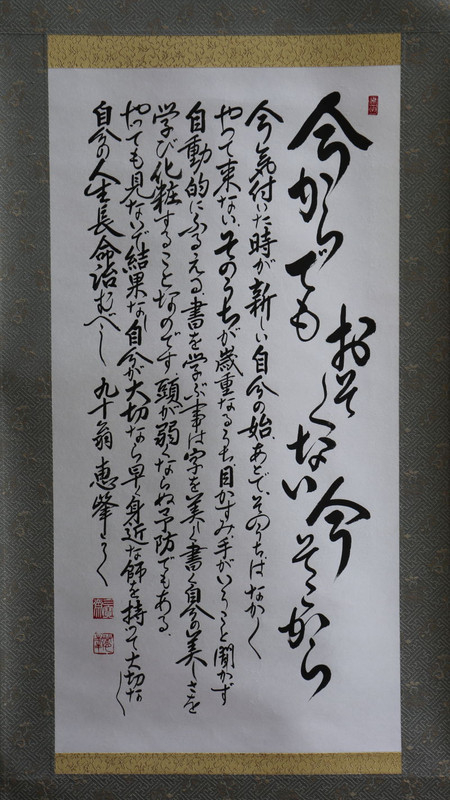 今からでも
おそくない今
そこから
今気付いた時が新しい自分の始、あとで、そのうちはなかく
やって来ない。そのうちが歳重なるうち目かすみ手がいうこと聞かず
自動的にふるえる書を学ぶ事は字を美しく書く自分の美しさを
学び化粧することなのです、頭が弱くならぬ予防でもある、
やっても見ないで結果なし自分が大切なら早く身近な師を持って大切な
自分の人生長命治むべし 九十翁 恵